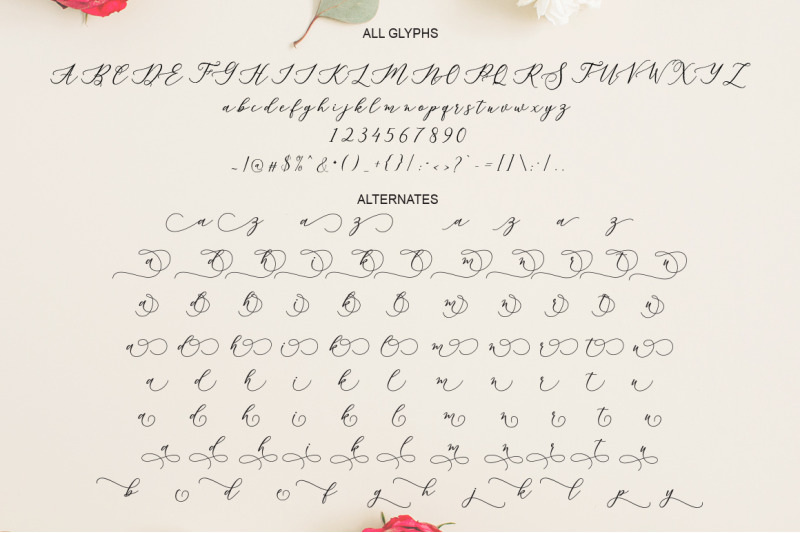 ALL GLYPHS
A B C D E F G H I J K L M N O P Q R S T U V W X Y Z
a b c d e f g h i j k l m n o p q r s t u v w x y z
1 2 3 4 5 6 7 8 9 0
~ ! @ # $ % ^ & * ( ) _ + { } | : " < > ? ` - = [ ] \ ; ' / , .
ALTERNATES
a z a z a z a z
a d h i k l m n r t u
a d h i k l m n r t u
a d h i k l m n r t u
a d h i k l m n r t u
a d h i k l m n r t u
a d h i k l m n r t u
b d f g h j k l p y